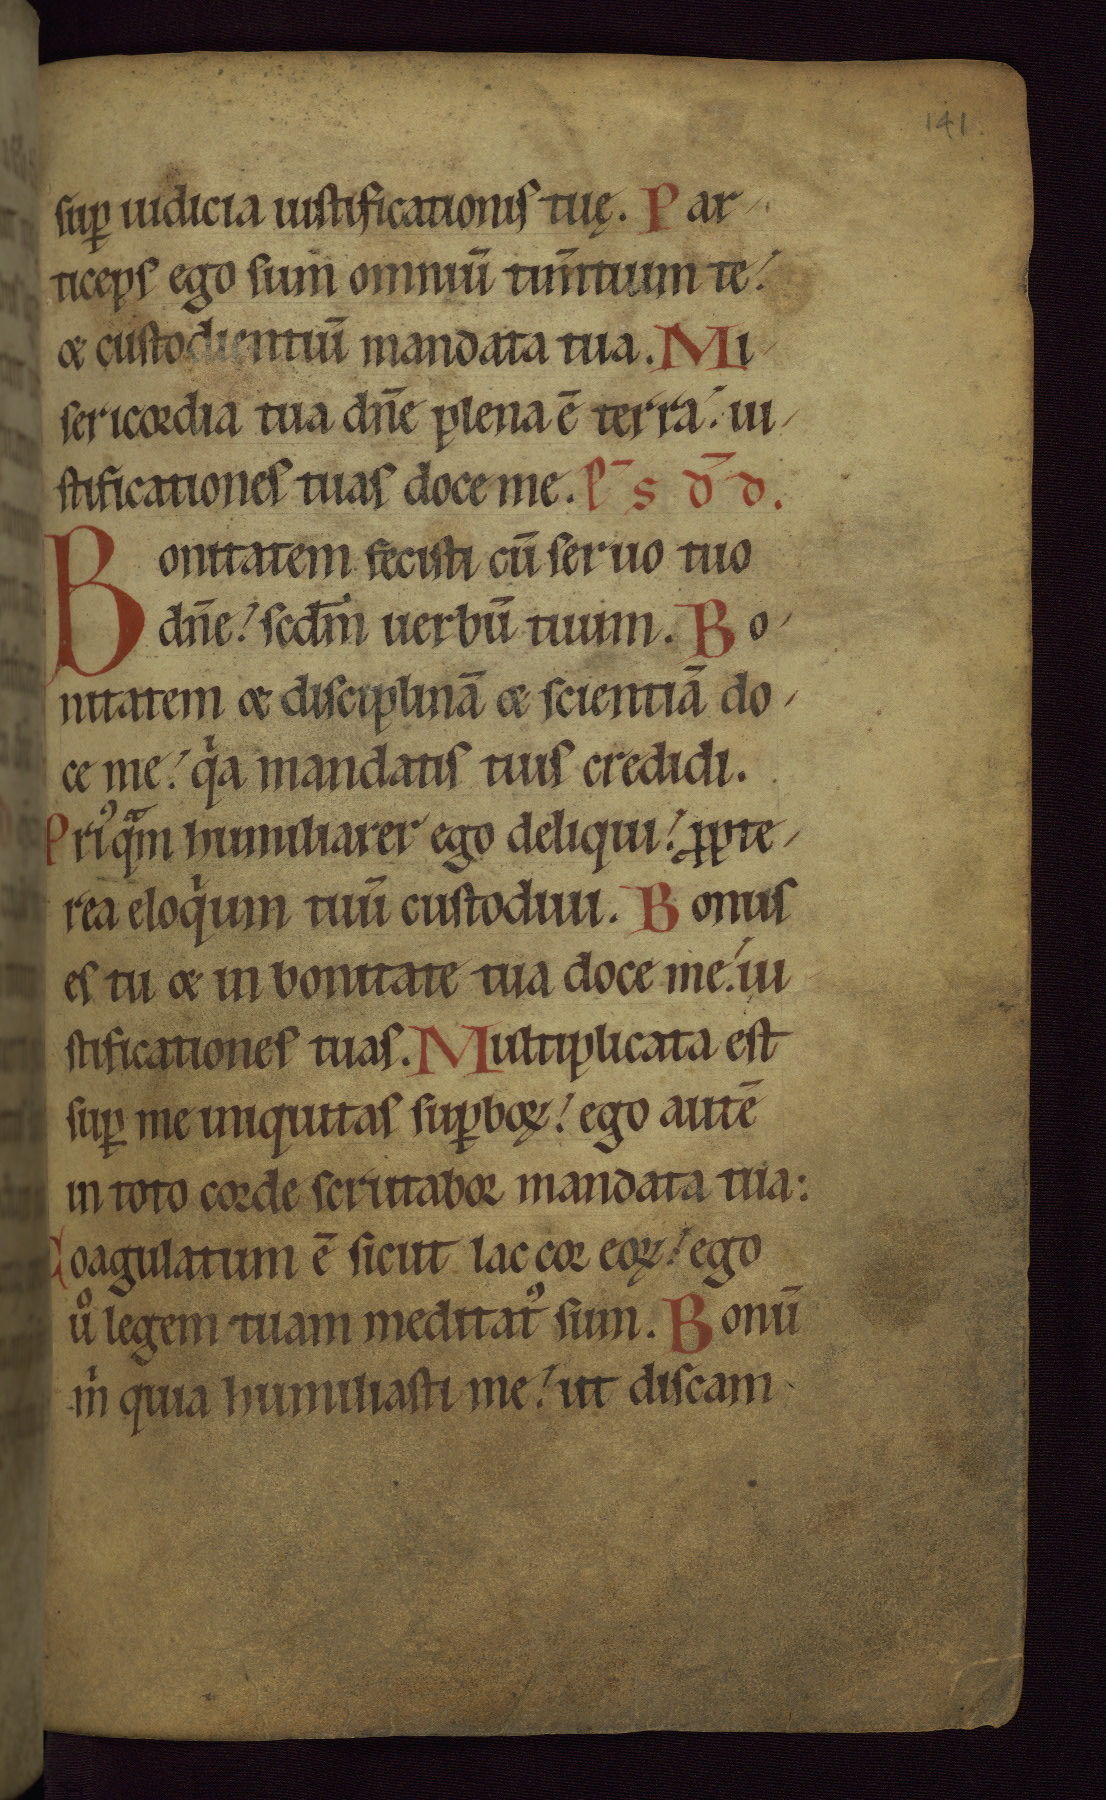 141
sup iudicia iustificationis tuę. Par-
ticeps ego sum omniū tim̄tium te:
& custodientiū mandata tua. Mi-
sericordia tua dn̄e plena ē terra: iu-
stificationes tuas doce me. p̄s d̄d.
Bonitatem fecisti cū seruo tuo
dn̄e: scd̄m uerbū tuum. Bo-
nitatem & disciplinā & scientiā do-
ce me: qͥa mandatis tuis credidi.
Priꝰqᷓm humiliarer ego deliqui: ꝓpte-
rea eloqͥum tuū custodiui. Bonus
es tu & in bonitate tua doce me: iu
stificationes tuas. Multiplicata est
suꝑ me iniquitas suꝑboꝝ: ego autē
in toto corde scrutabor mandata tua:
Coagulatum ē sicut lac cor eoꝝ: ego
uͦ legem tuam meditatꝰ sum. Bonū
mͥ quia humiliasti me: ut discam